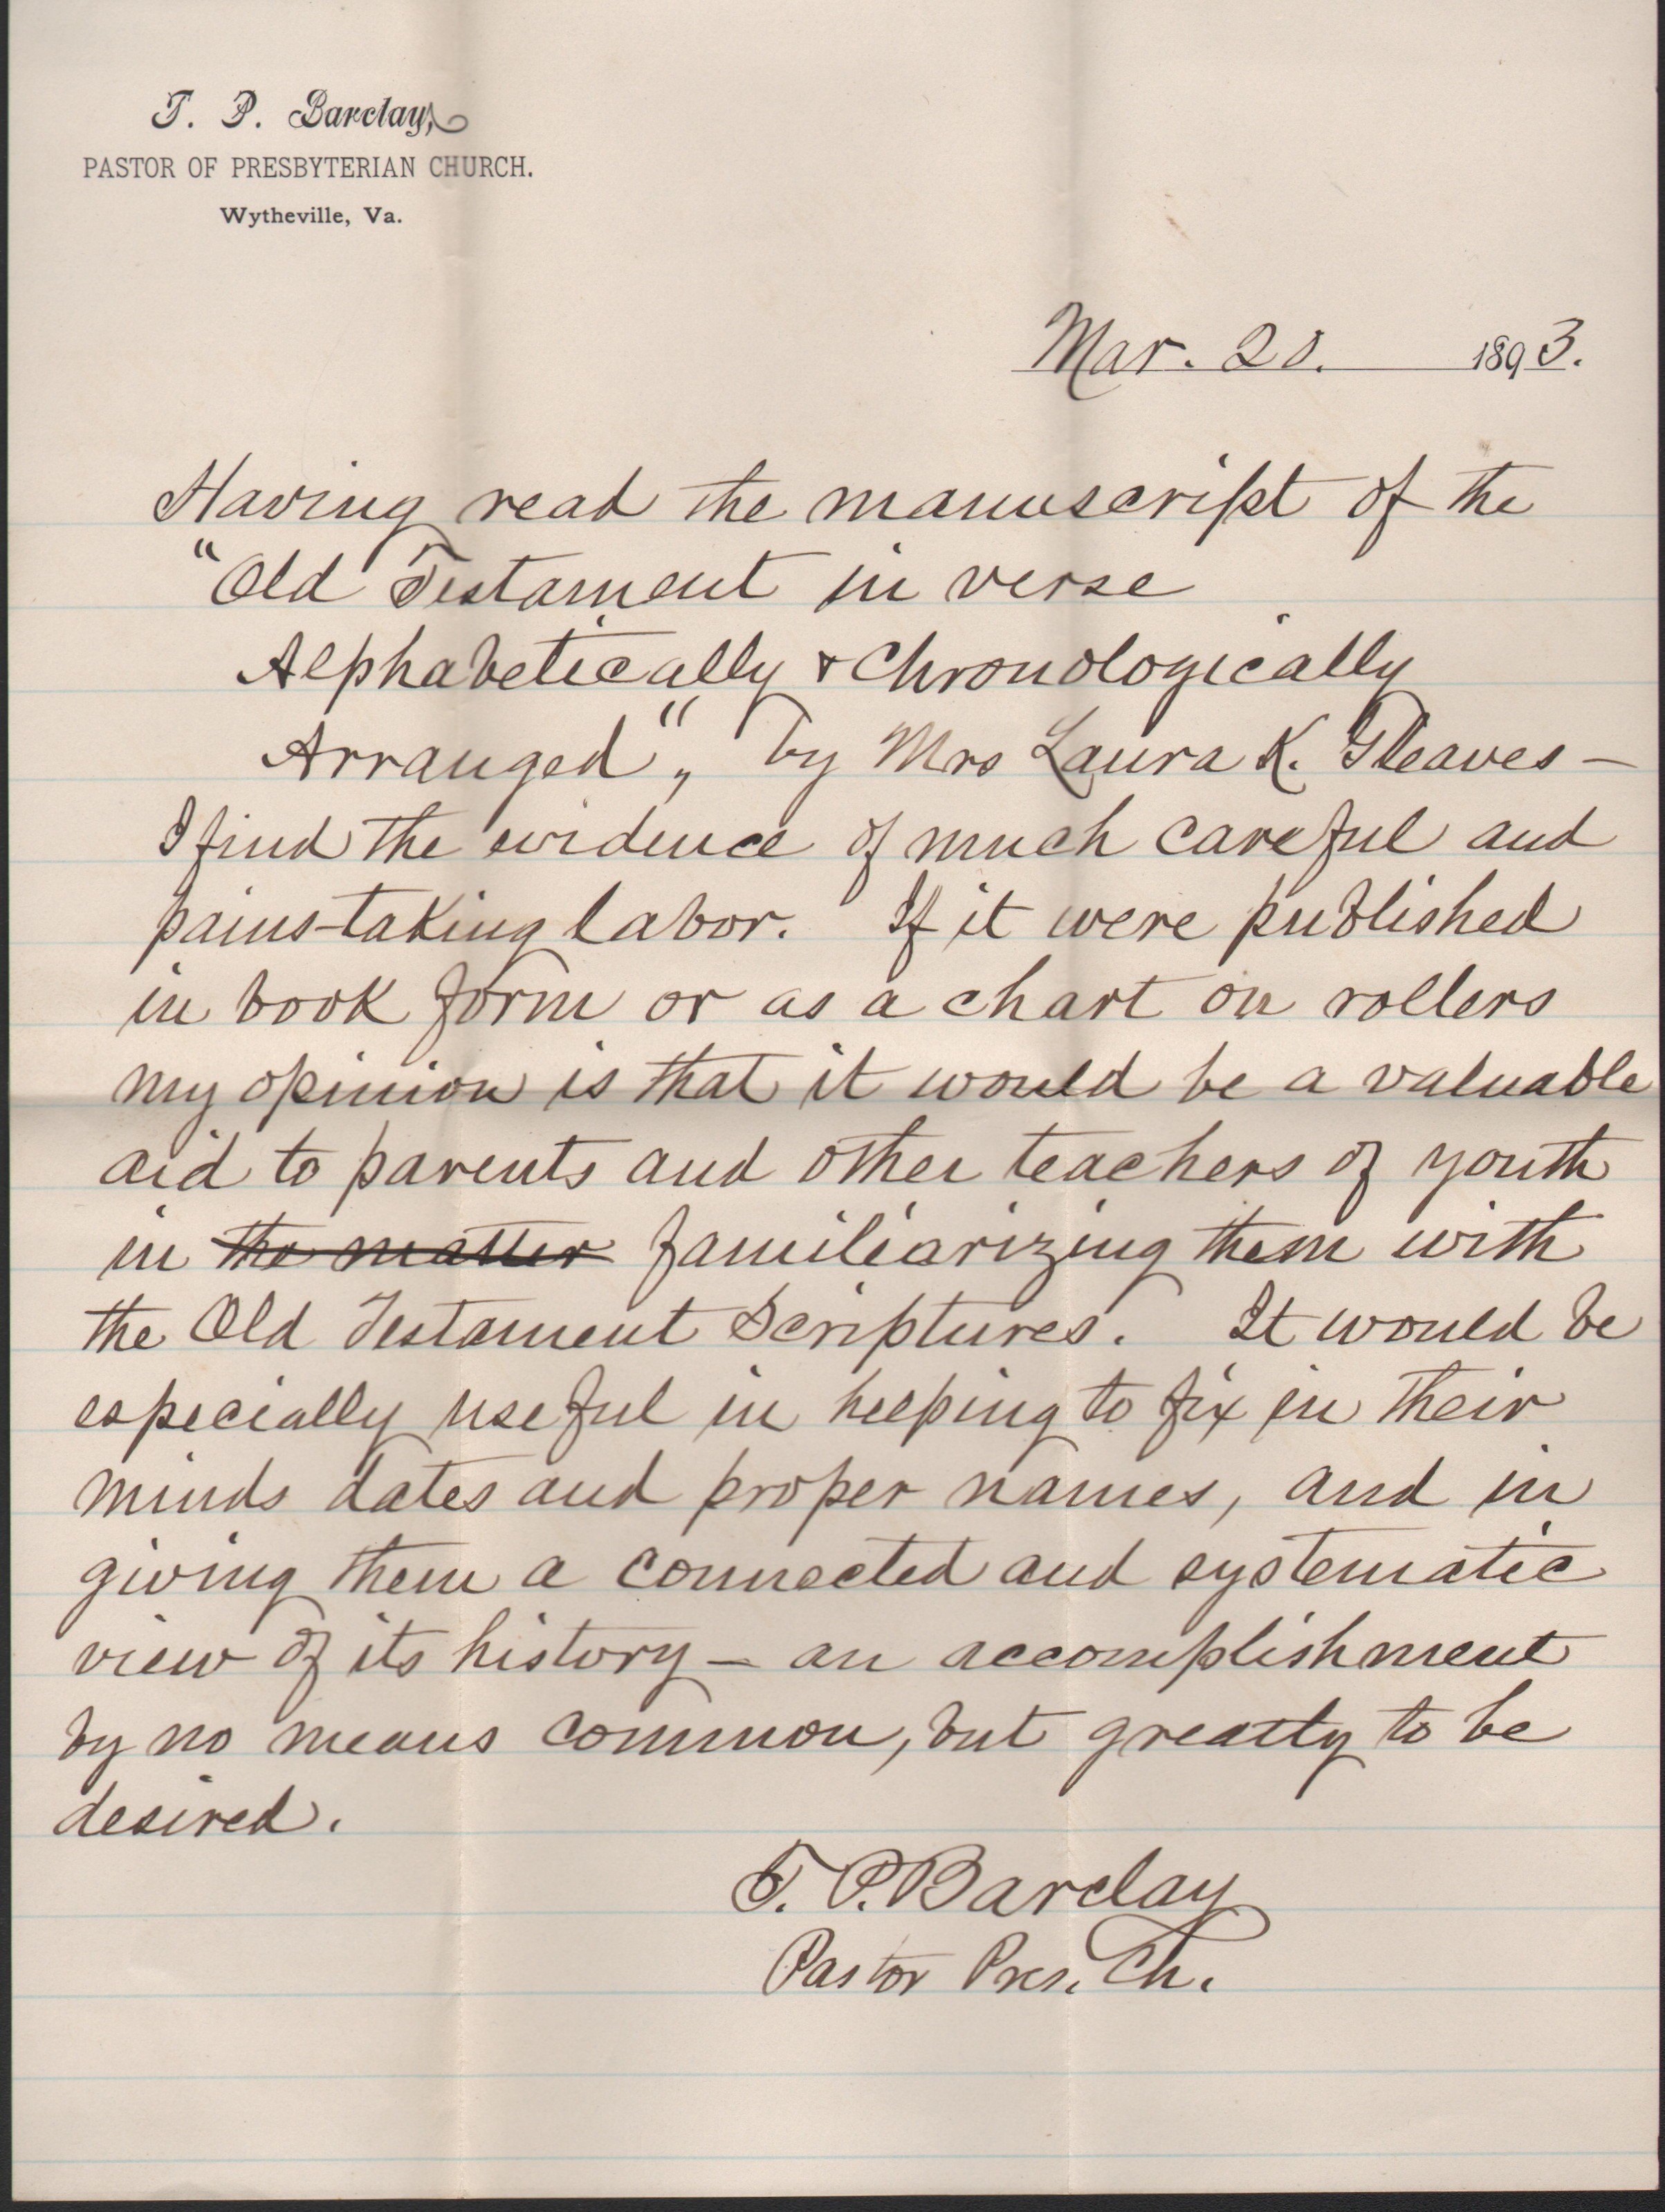 T. P. Barclay,
PASTOR OF PRESBYTERIAN CHURCH.
Wytheville, Va.
Mar. 20. 1893.
Having read the manuscript of the
"Old Testament in verse
Alphabetically & Chronologically
Arranged", by Mrs Laura K. Gleaves —
I find the evidence of much careful and
pains-taking labor. If it were published
in book form or as a chart on rollers
my opinion is that it would be a valuable
aid to parents and other teachers of youth
in the matter familiarizing them with
the Old Testament Scriptures. It would be
especially useful in helping to fix in their
minds dates and proper names, and in
giving them a connected and systematic
view of its history — an accomplishment
by no means common, but greatly to be
desired.
T. P. Barclay
Pastor Pres. Ch.